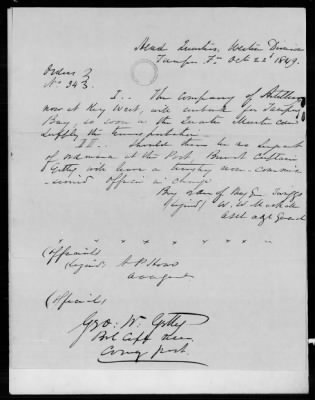 Head Quarters, Western Division
Tampa F. Oct 22d 1849.
Orders
No 343.
I.. The Company of Artillery
now at Key West, will embark for Tampa
Bay, so soon as the Quarter Master can
supply the transportation.
II.. Should there be no Sergeant
of ordnance at the Post, Brevet Captain
Getty, will leave a non commis-
sioned officer in charge
By order of Genl Twiggs
(Signed) W. W. Mackall
Asst adjt Genl
" " " " " " " "
(Official)
(Signed)
(Official)
Geo: W. Getty
Bvt Capt
Comg post.